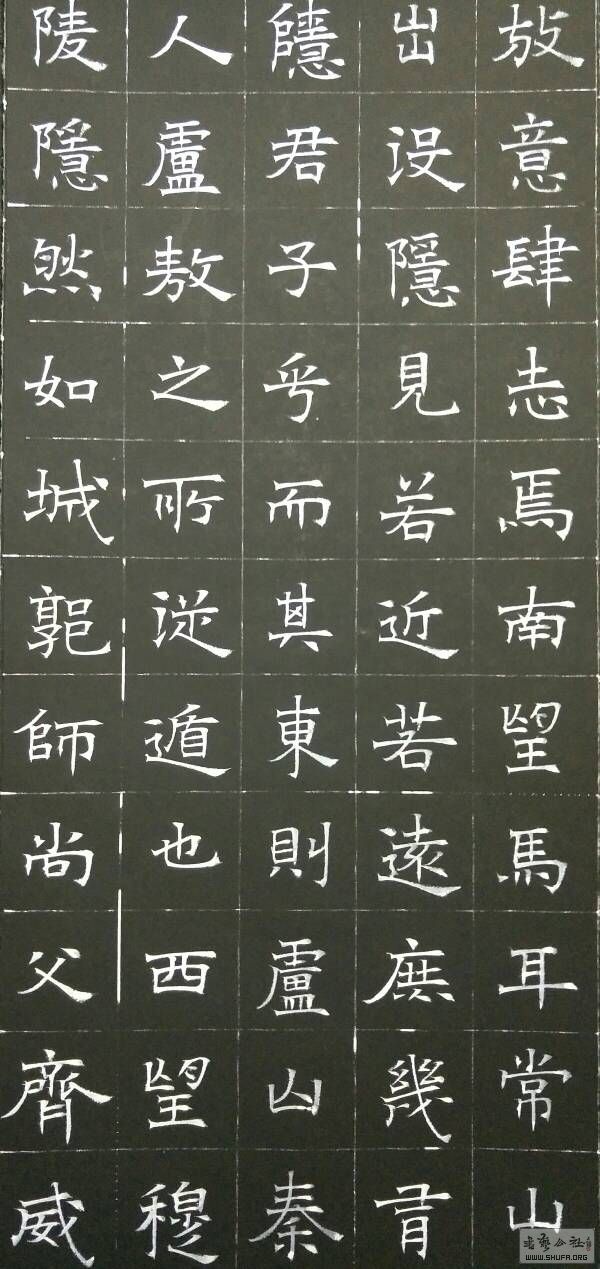 放意肆志焉南望馬耳常山
出没隱見若近若遠庶幾有
隱君子乎而其東則盧山秦
人盧敖之所從遁也西望穆
陵隱然如城郭師尚父齊威
書藝公社
WWW.SHUFA.ORG